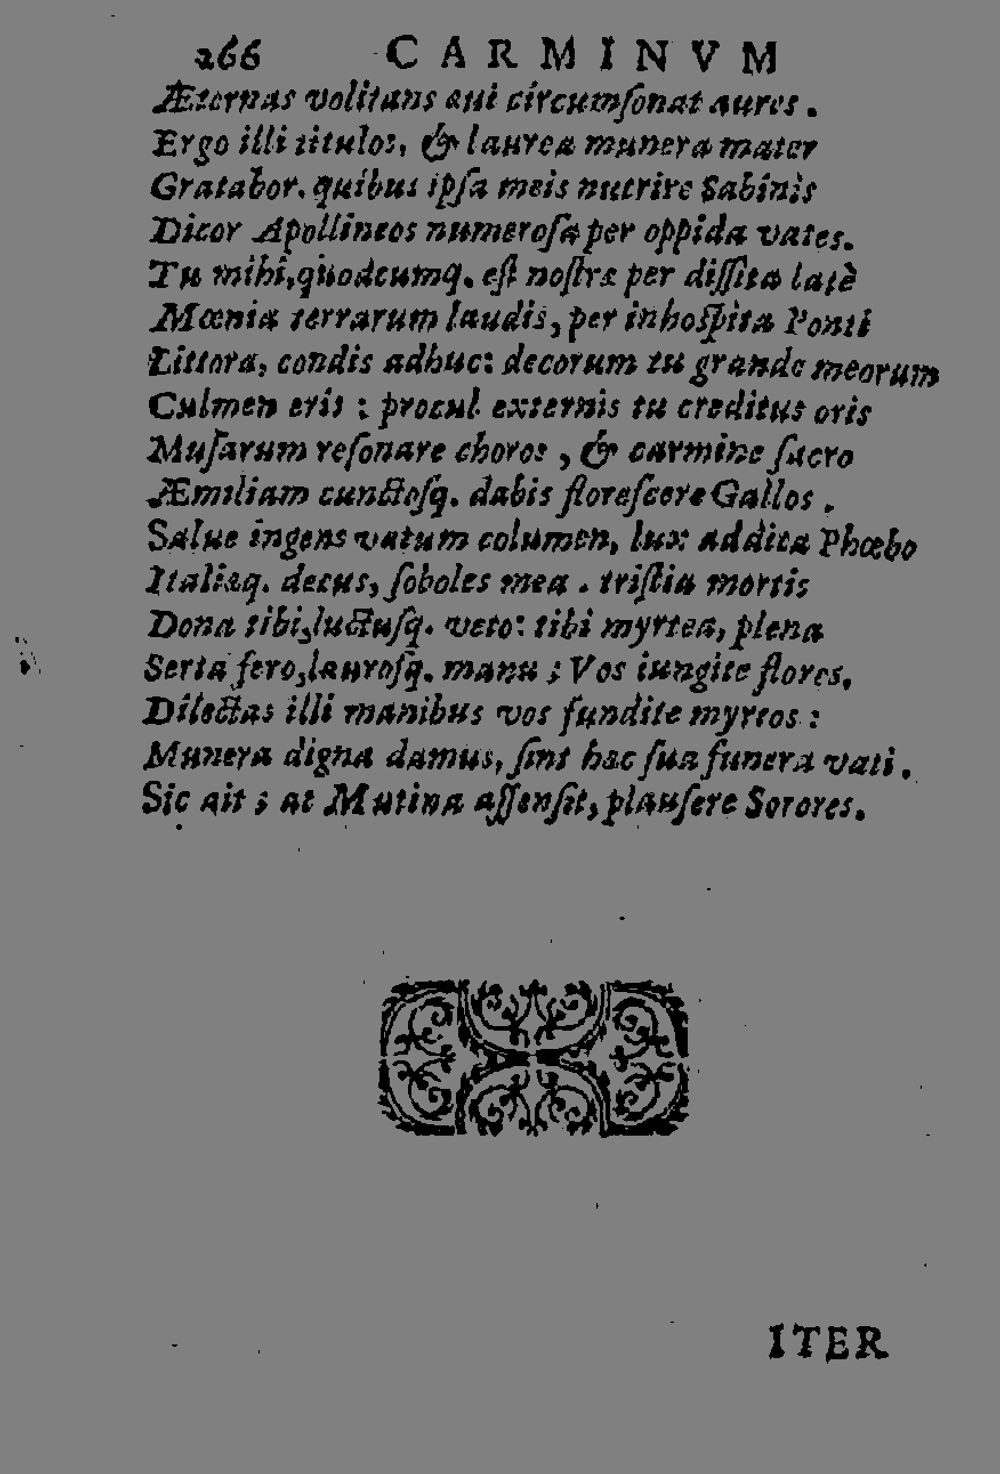 266 CARMINVM
Æternas volitans aui circumſonat aures.
Ergo illi titulos, & laurea munera mater
Gratabor. quibus ipſa meis nutrire Sabinis
Dicor Apollineos numeroſa per oppida vates.
Tu mihi, quodcumq. eſt noſtræ per diſſita latè
Mœnia terrarum laudis, per inhoſpita Ponti
Littora, condis adhuc: decorum tu grande meorum
Culmen eris: procul externis tu creditus oris
Muſarum reſonare choros, & carmine ſacro
Æmiliam cunctoſq. dabis floreſcere Gallos.
Salue ingens vatum columen, lux addita Phœbo
Italiæq. decus, ſoboles mea. triſtia mortis
Dona tibi, luctuſq. veto: tibi myrtea, plena
Serta fero, lauroſq. manu; Vos iungite flores,
Dilectas illi manibus vos fundite myrtos:
Munera digna damus, ſint hæc ſua funera vati.
Sic ait; at Mutina aſſenſit, plauſere Sorores.
ITER